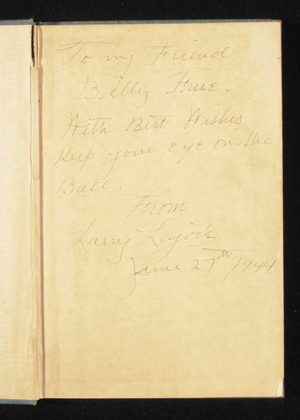 To my Friend
Billy
With Best Wishes
Keep your eye on the
Ball.
From
Larry Lajoie
June 27th/1944